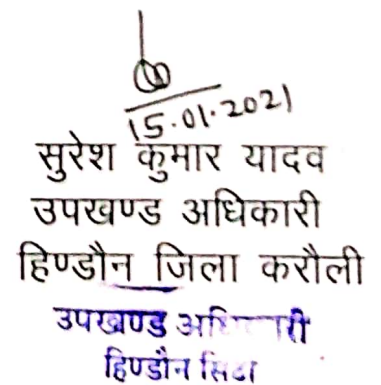 15.01.2021
सुरेश कुमार यादव
उपखण्ड अधिकारी
हिण्डौन जिला करौली
उपखण्ड अधिकारी
हिण्डौन सिटी